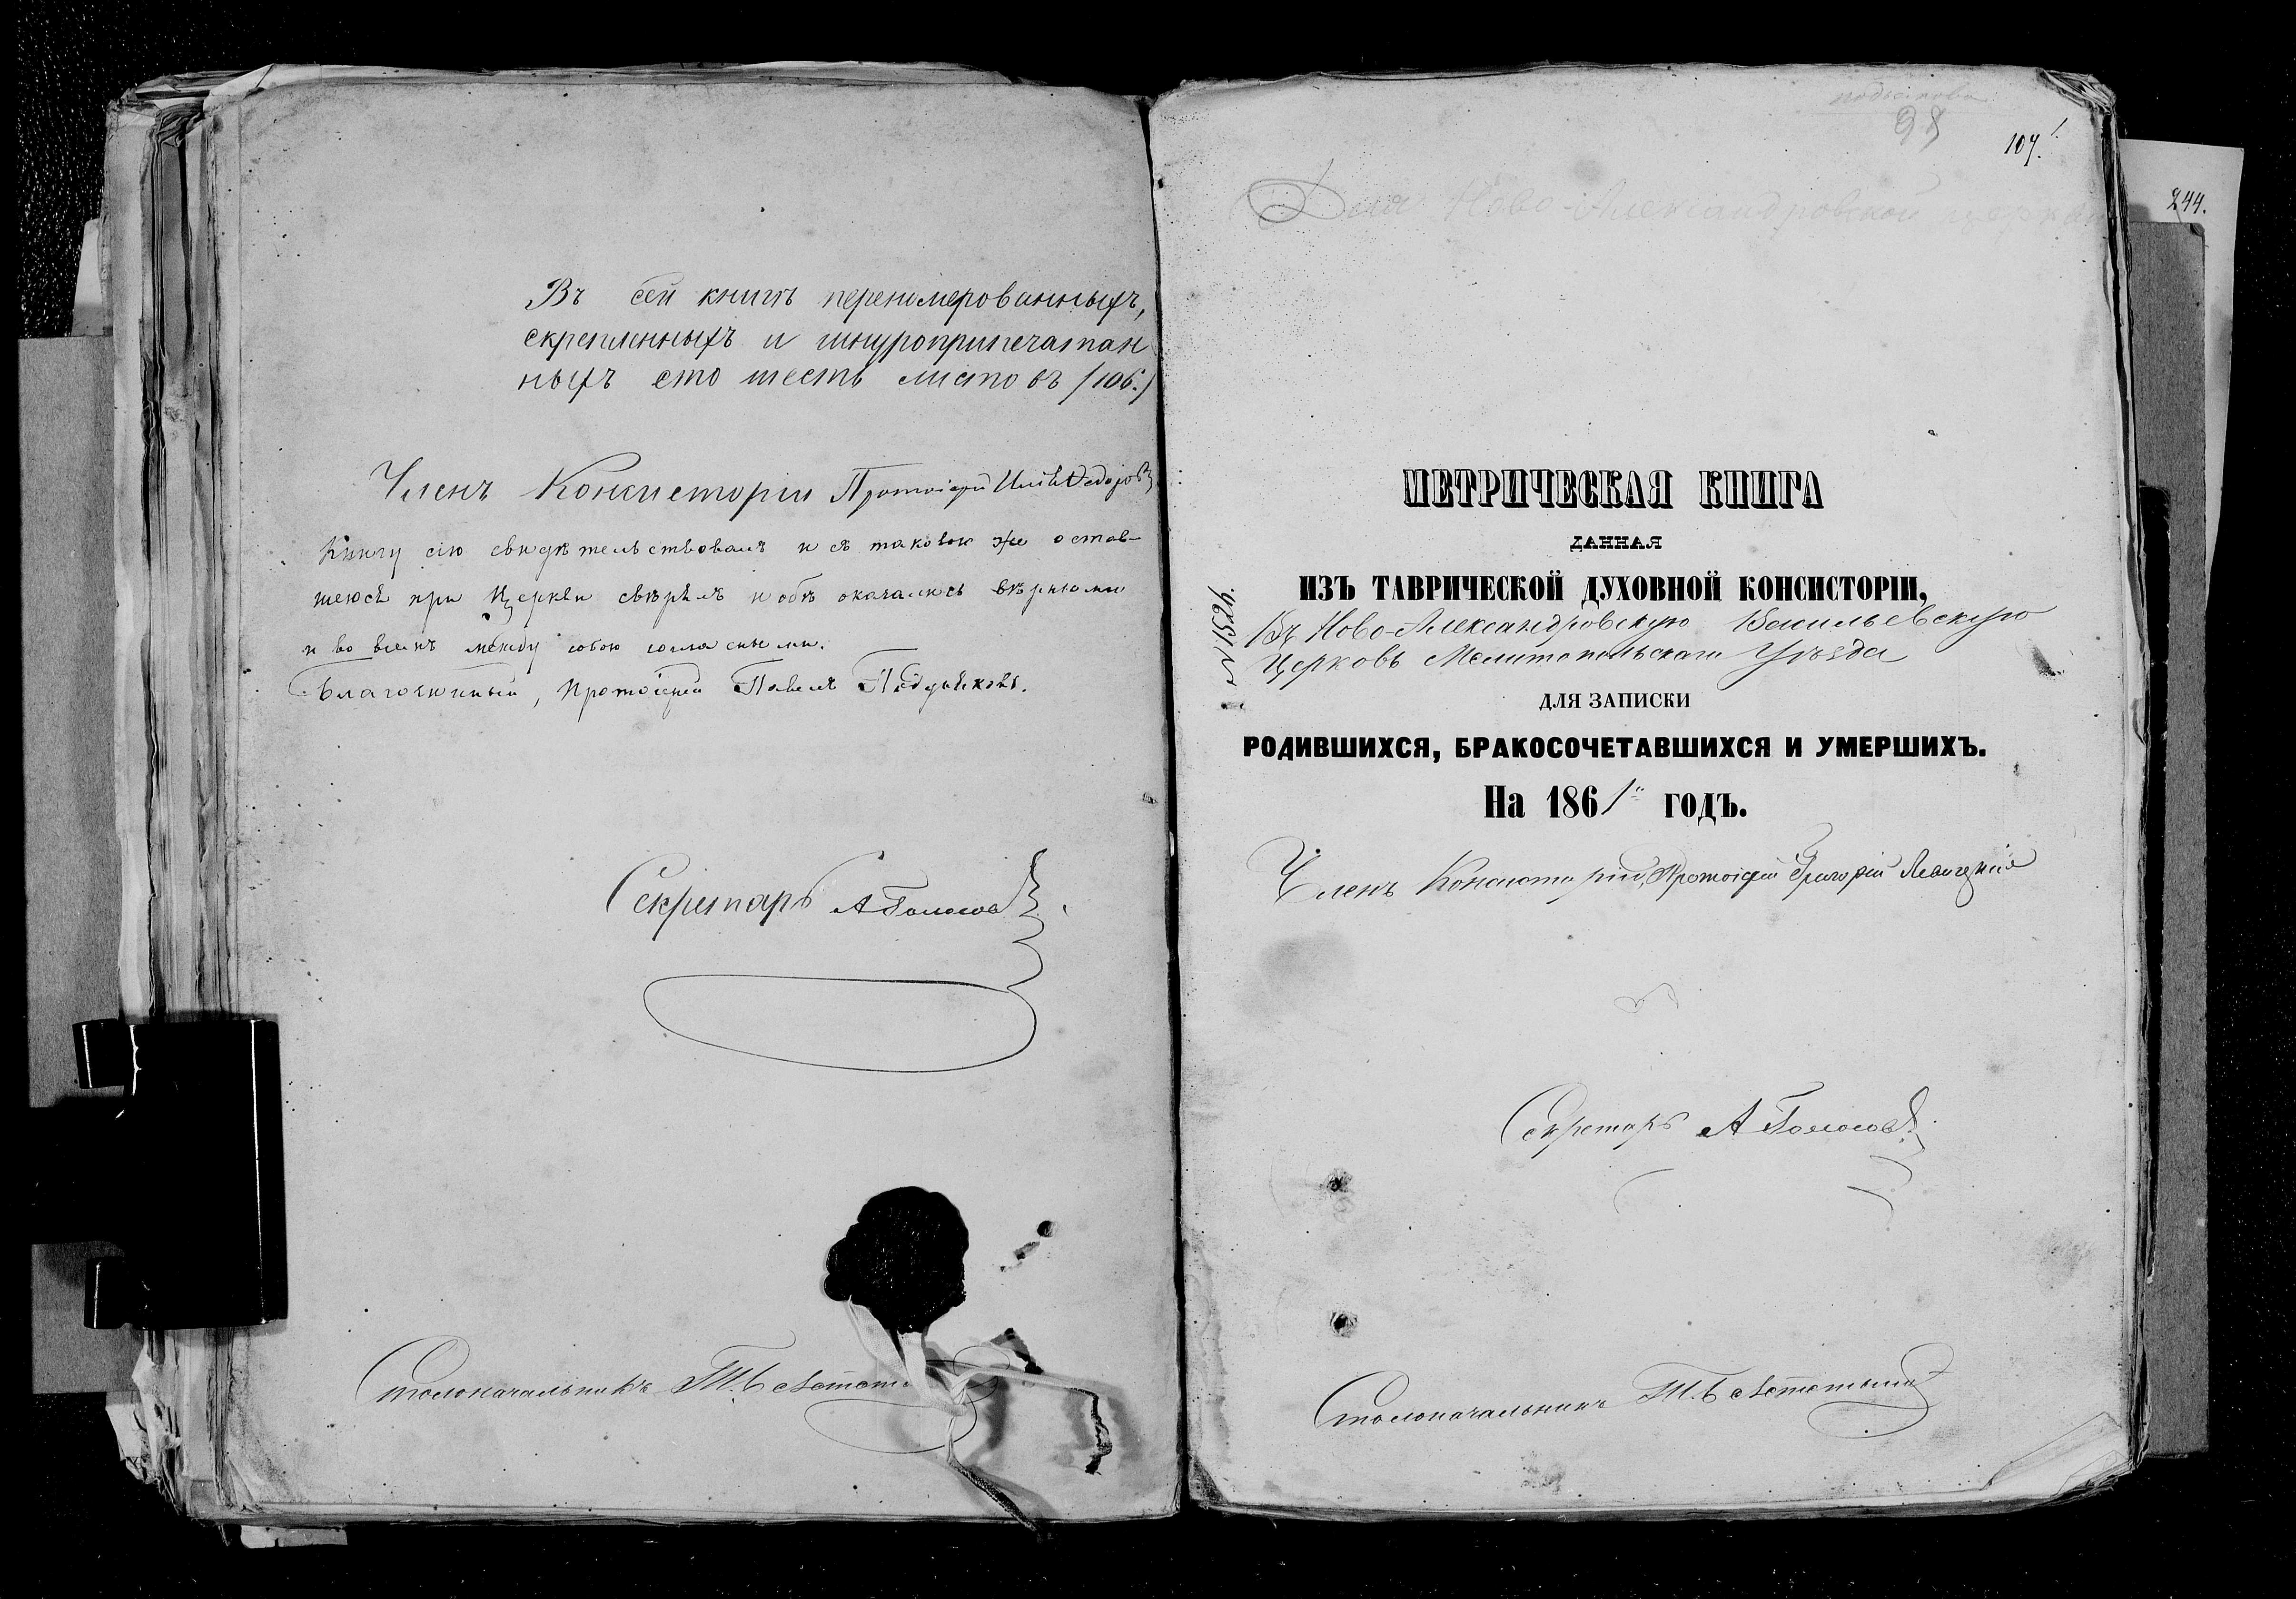 Въ сей книгѣ перенумерованныхъ,
скрепленныхъ и шнуроприпечатан
ныхъ сто шесть листовъ /106./
Членъ Консисторіи Протоіерей
Книгу сію свидѣтельствовалъ и съ таковою же остав-
шеюся при Церкви свѣрялъ и обѣ оказались вѣрными
и во всемъ между собою согласными.
Благочинный, Протоіерей Павелъ
Секретарь А
Столоначальникъ
107.
244.
Для Ново-Александровской церкви
МЕТРИЧЕСКАЯ КНИГА
ДАННАЯ
ИЗЪ ТАВРИЧЕСКОЙ ДУХОВНОЙ КОНСИСТОРІИ,
Въ Ново-Александровскую Васильевскую
Церковь Мелитопольскаго Уѣзда
ДЛЯ ЗАПИСКИ
РОДИВШИХСЯ, БРАКОСОЧЕТАВШИХСЯ И УМЕРШИХЪ.
На 1861й ГОДЪ.
№ 1524.
Членъ Консисторіи, Протоіерей Григорій
Секретарь А
Столоначальникъ